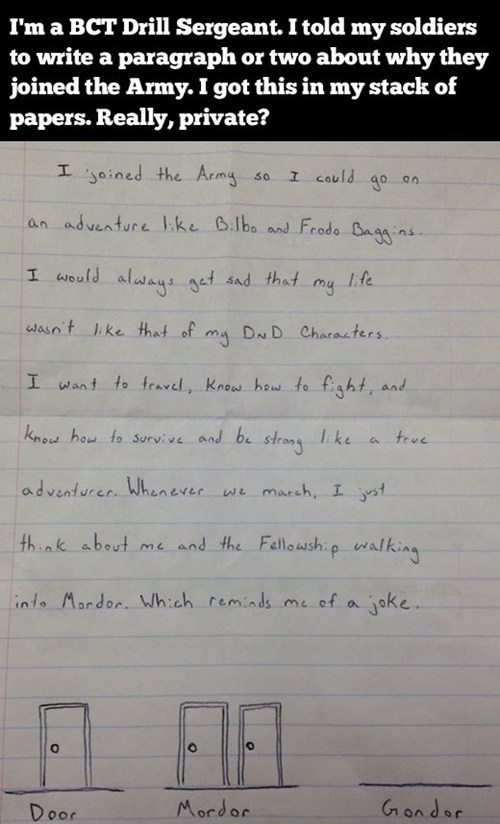 I'm a BCT Drill Sergeant. I told my soldiers
to write a paragraph or two about why they
joined the Army. I got this in my stack of
papers. Really, private?
I joined the Army so I could go on
an adventure like Bilbo and Frodo Baggins.
I would always get sad that my life
wasn't like that of my DND Characters.
I want to travel, know how to fight, and
know how to survive and be strong like a true
adventurer. Whenever we march, I just
think about me and the Fellowship walking
into Mordor. Which reminds me of a joke.
Door Mordor Gondor